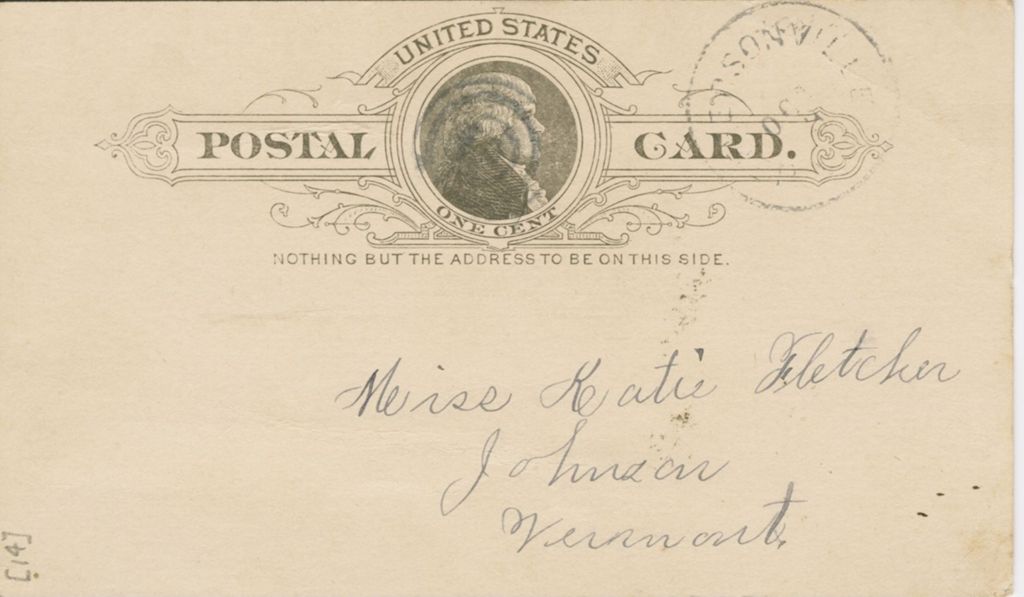 UNITED STATES
POSTAL CARD.
ONE CENT
NOTHING BUT THE ADDRESS TO BE ON THIS SIDE.
Miss Katie Fletcher
Johnson
Vermont.
[14]